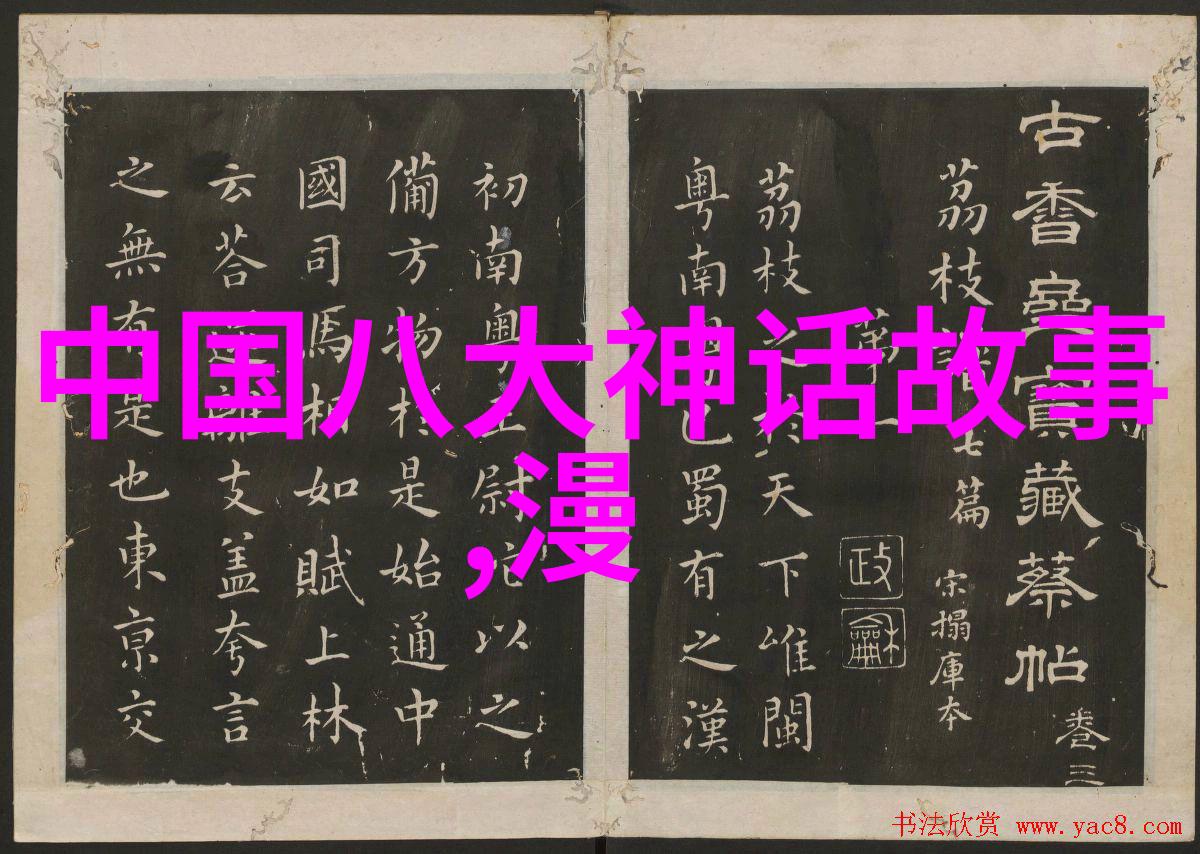 中国八大神话故事
,漫
古香齋寶藏蔡帖 卷三
荔枝譜七篇 宋搨庫本
第一
政龢
荔枝之於天下唯閩
粵南粵巴蜀有之漢
初南粵王尉佗以之
備方物於是始通中
國司馬相如賦上林
云荅遝離支盖夸言
之無有是也東京交
书法欣赏 www.yac8.com